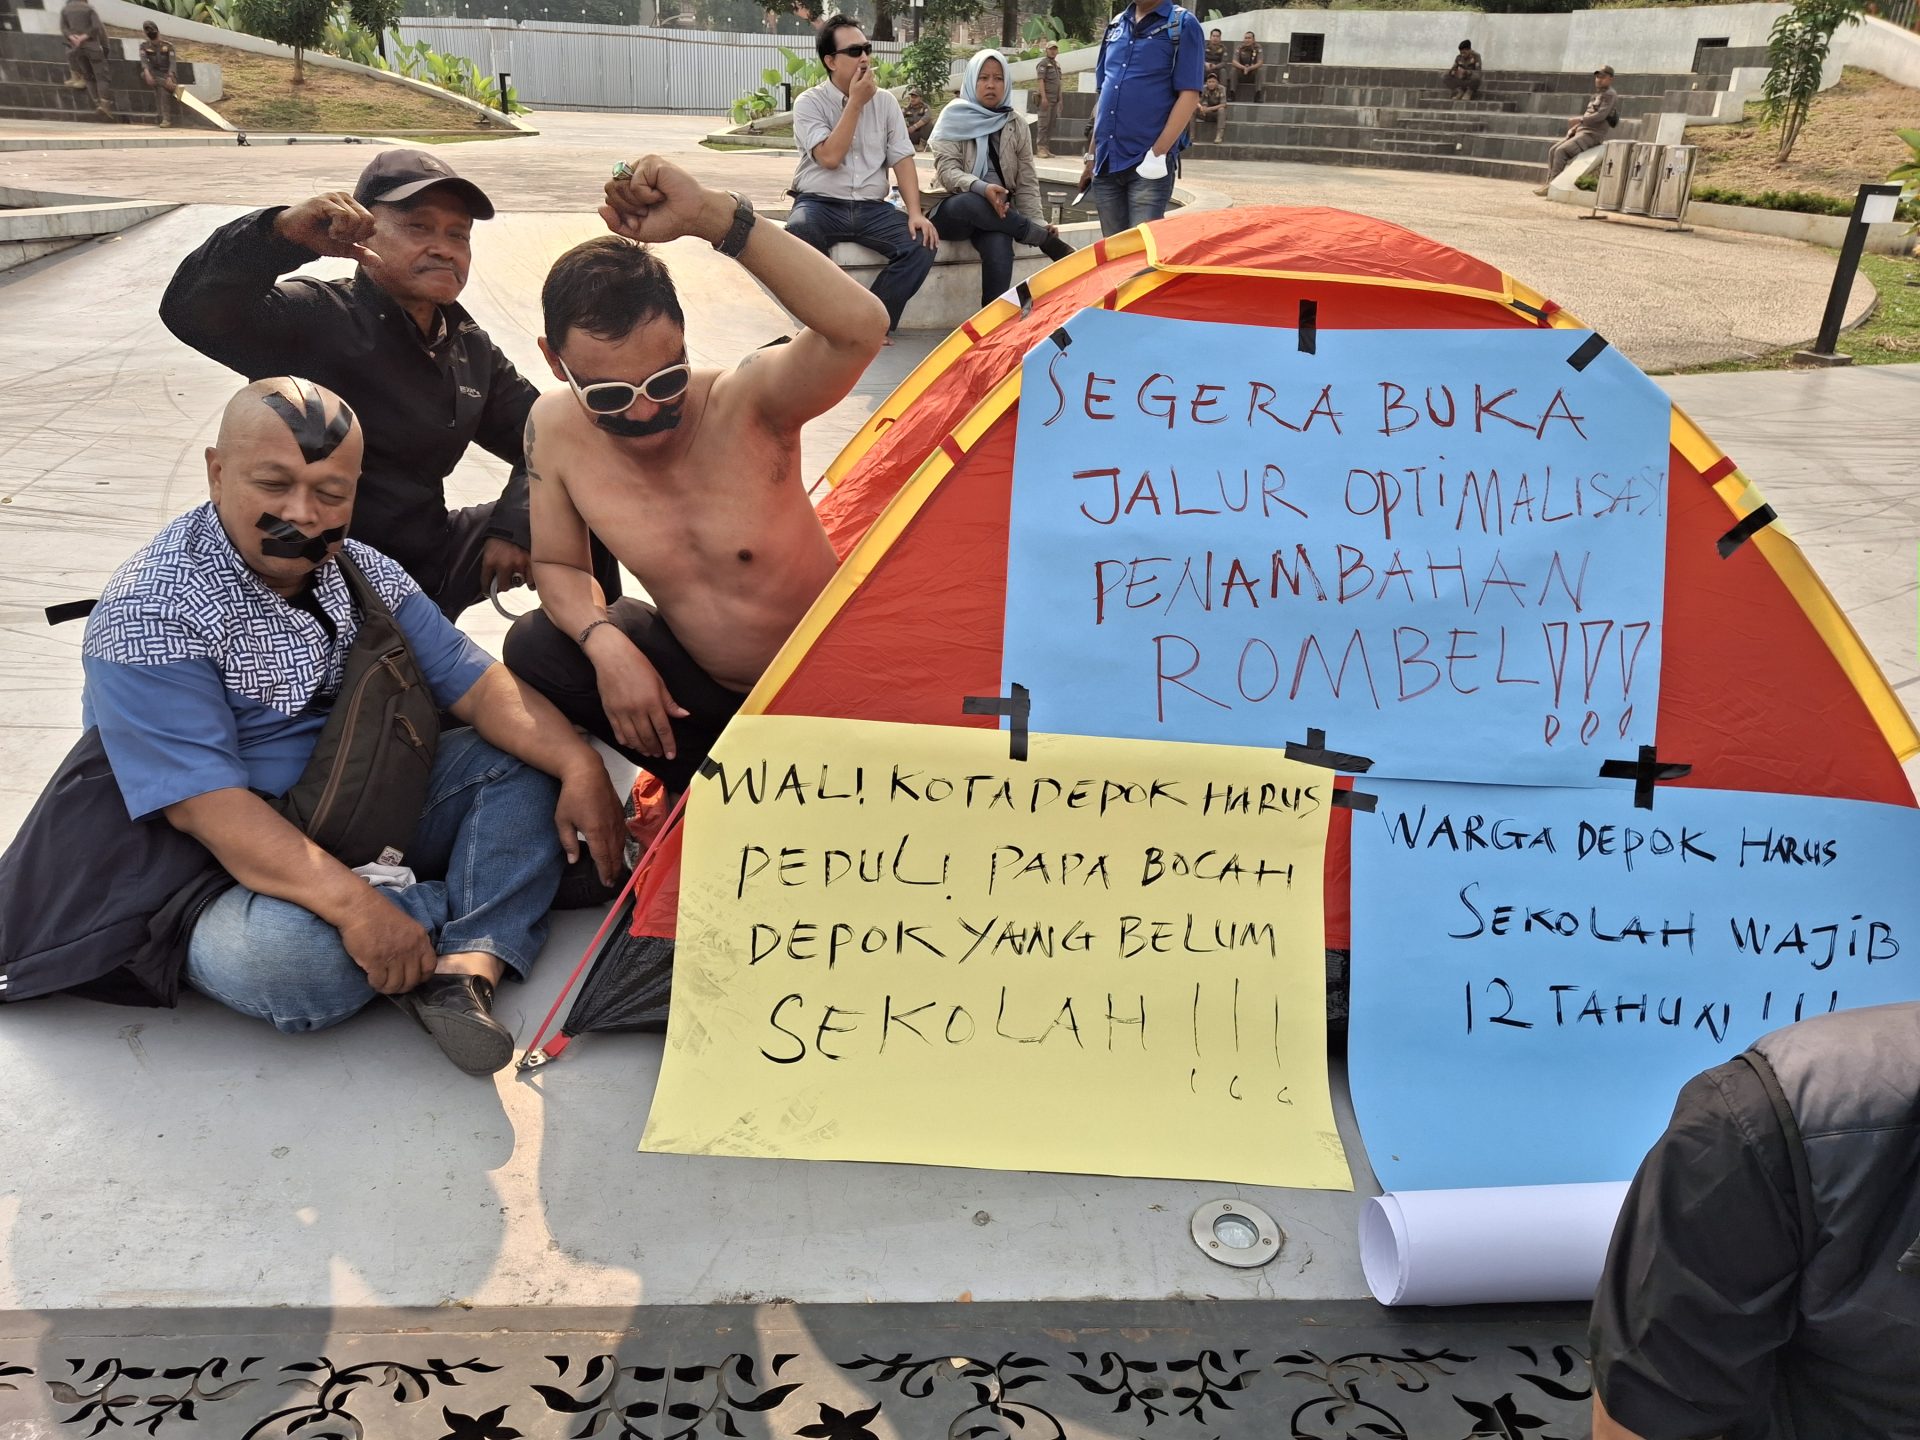 SEGERA BUKA
JALUR OPTIMALISASI
PENAMBAHAN
ROMBEL!!!
WALI KOTA DEPOK HARUS
PEDULI PAPA BOCAH
DEPOK YANG BELUM
SEKOLAH !!!
WARGA DEPOK HARUS
SEKOLAH WAJIB
12 TAHUN !!!